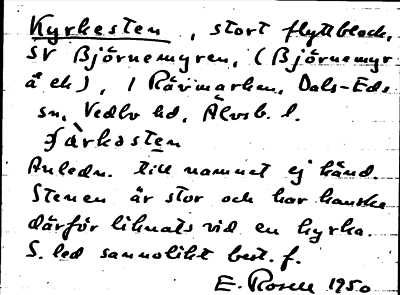 Kyrkesten, stort flyttblock,
SV Björnemyren, (Björnemyr
å ek), i Rävmarken, Dals-Eds
sn, Vedbo hd, Älvsb. l.
çàrkəsten
Anledn. till namnet ej känd.
Stenen är stor och har kanske
därför liknats vid en kyrka.
S. led sannolikt best. f.
E. Rosell 1950